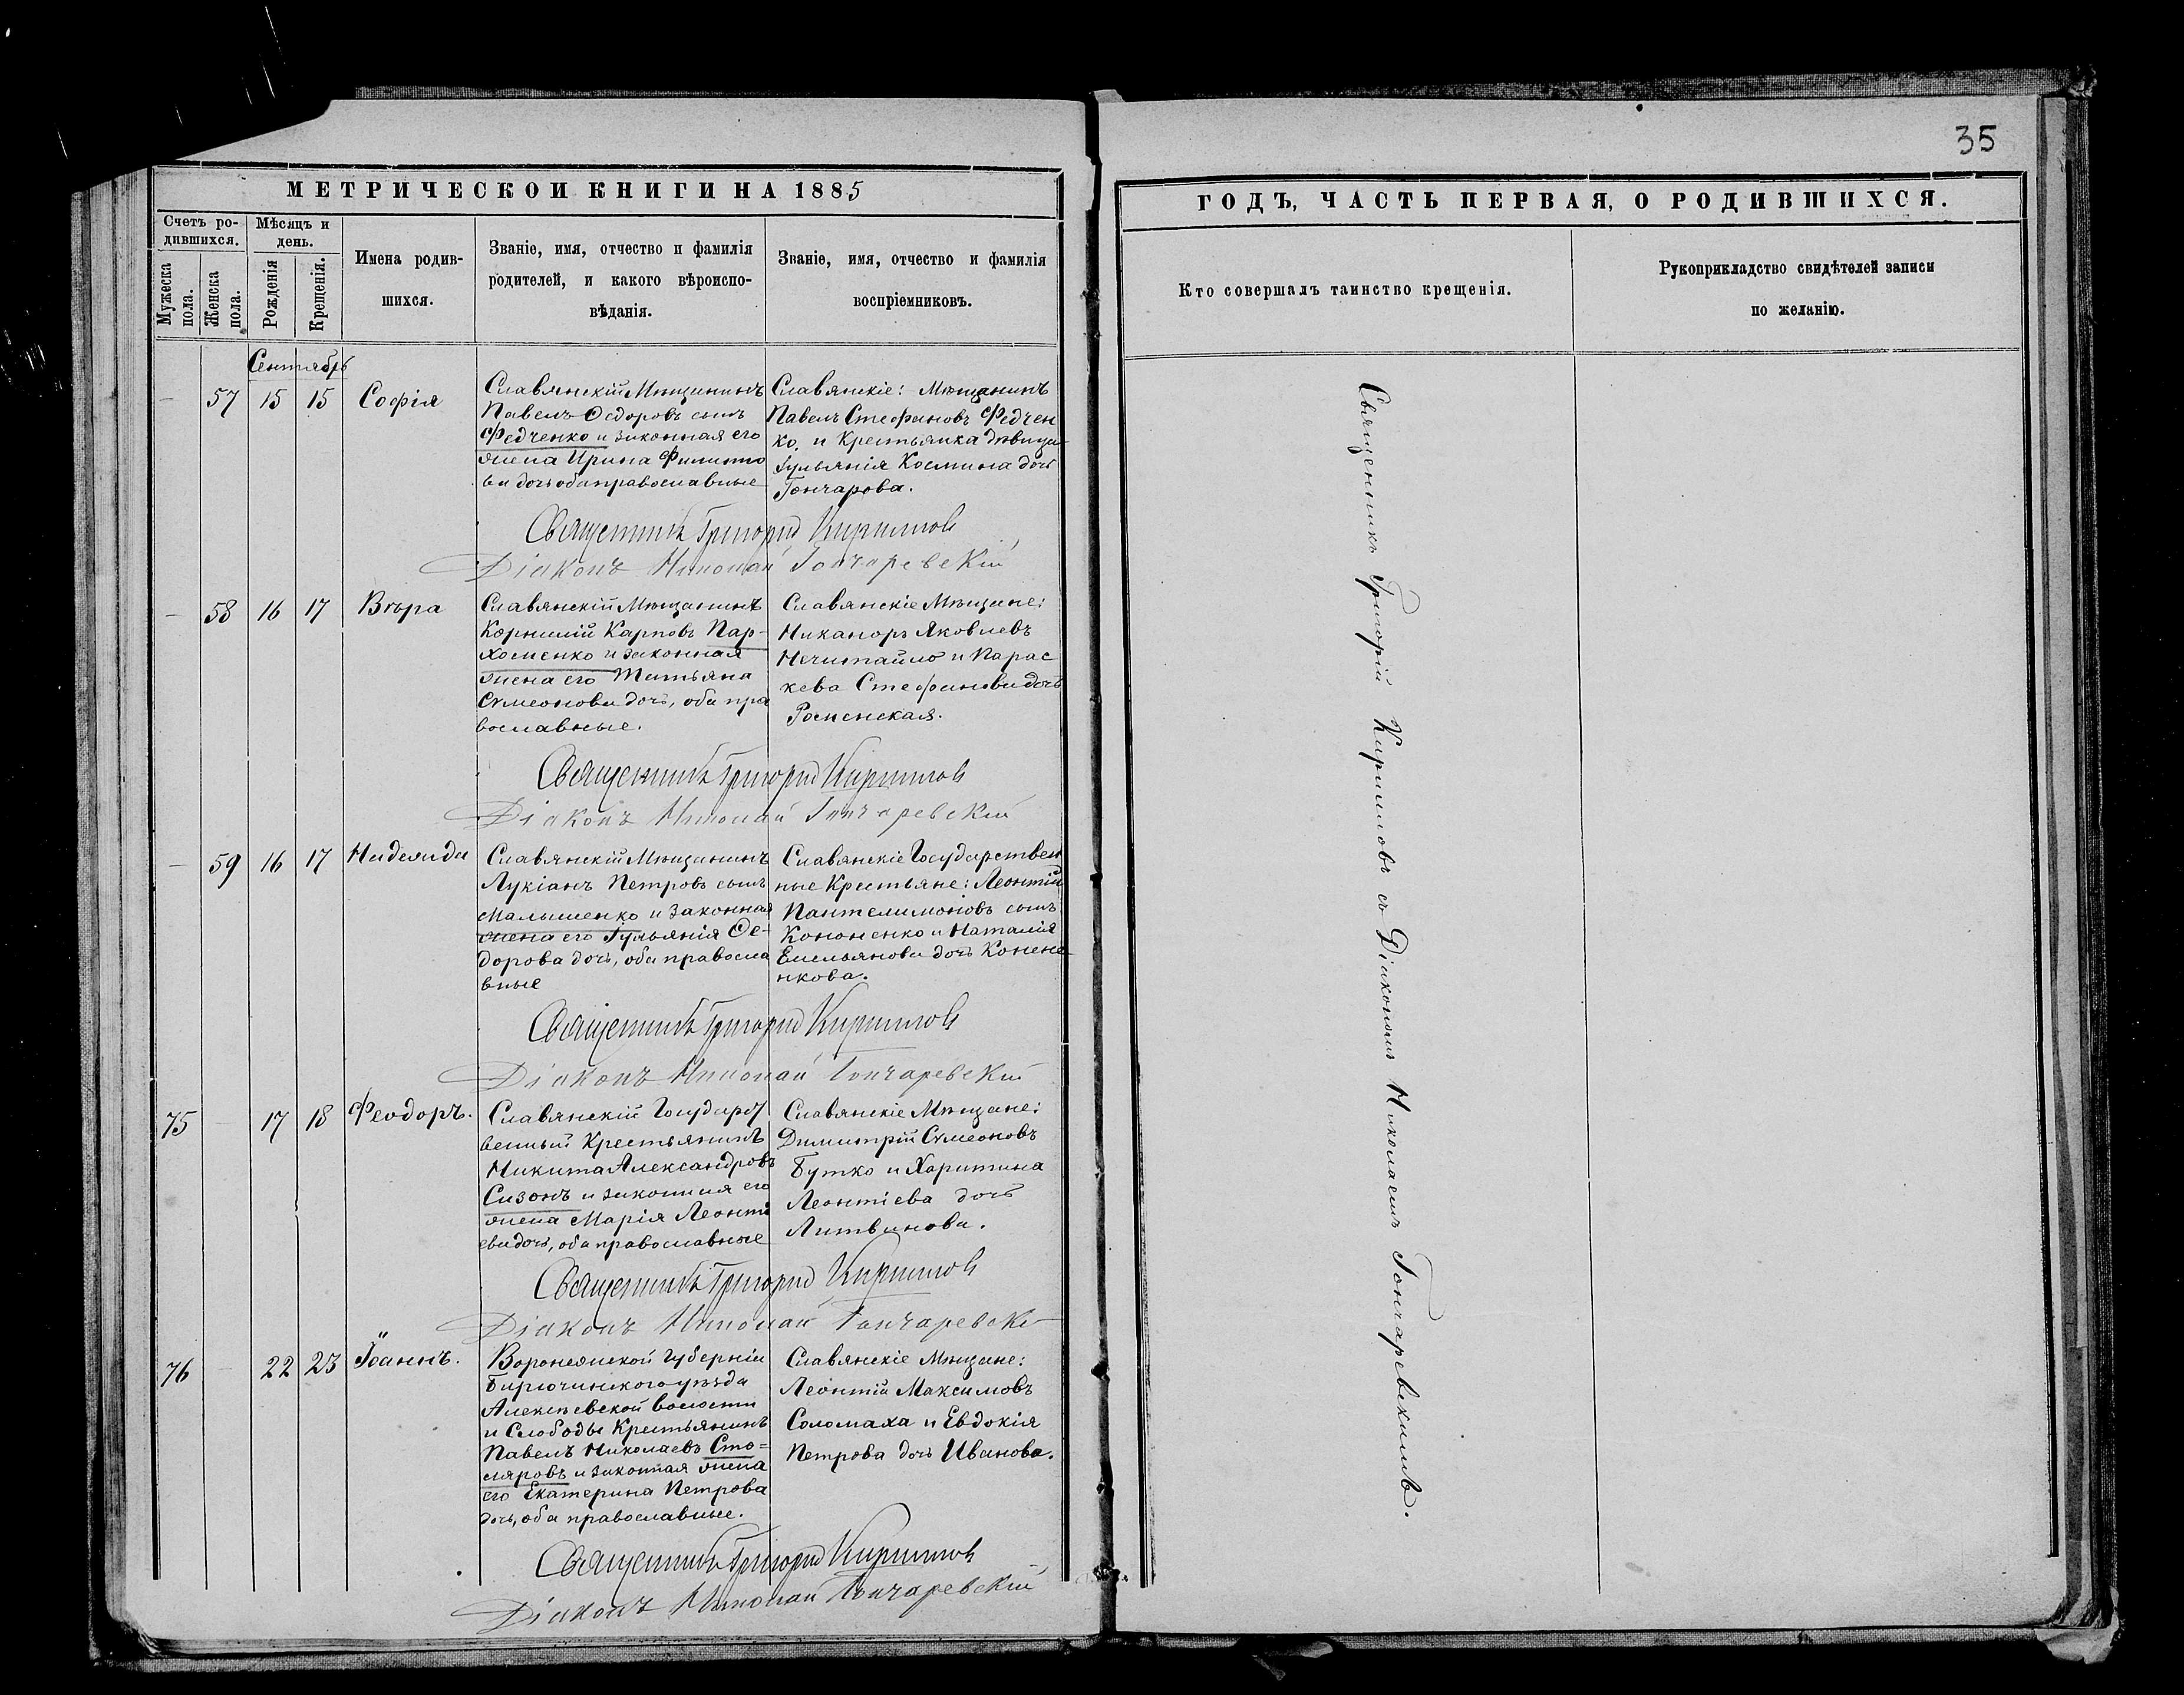 35
МЕТРИЧЕСКОЙ КНИГИ НА 1885
ГОДЪ, ЧАСТЬ ПЕРВАЯ, О РОДИВШИХСЯ.
Счетъ ро-
дившихся.
Мѣсяцъ и
день.
Мужеска
пола.
Женска
пола.
Рожденія
Крещенія.
Имена родив-
шихся.
Званіе, имя, отчество и фамилія
родителей, и какого вѣроиспо-
вѣданія.
Званіе, имя, отчество и фамилія
воспріемниковъ.
Кто совершалъ таинство крещенія.
Рукоприкладство свидѣтелей записи
по желанію.
Сентябрь
— 57 15 15 Софія
Славянскій Мѣщанинъ
Павелъ Ѳедоровъ сынъ
Федченко и законная его
жена Ирина Филиппо
ва дочь оба православные
Славянскіе: Мѣщанинъ
Павелъ Стефановъ Федчен
ко, и Крестьянка дѣвица
Іульянія Космина дочь
Гончарова.
Священникъ Григорій Кирилловъ
Діаконъ Николай Гончаревскій
— 58 16 17 Вѣра
Славянскій Мѣщанинъ
Корнилій Карповъ Пар-
хоменко и законная
жена его Татьяна
Сѵмеонова дочь, оба пра
вославные.
Славянскіе Мѣщане:
Никаноръ Яковлевъ
Нечитайло и Парас
кева Стефанова дочь
Роменская.
Священникъ Григорій Кирилловъ
Діаконъ Николай Гончаревскій
— 59 16 17 Надежда
Славянскій Мѣщанинъ
Лукіанъ Петровъ сынъ
Малышенко и законная
жена его Іульянія Ѳе-
дорова дочь, оба правосла
вные
Славянскіе Государствен
ные Крестьяне: Леонтій
Пантелимоновъ сынъ
Кононенко и Наталія
Емельянова дочь Конене-
нкова.
Священникъ Григорій Кирилловъ
Діаконъ Николай Гончаревскій
75 — 17 18 Феодоръ.
Славянскій Государст
венный Крестьянинъ
Никита Александровъ
Сизонъ и законная его
жена Марія Леонті
ева дочь, оба православные
Славянскіе Мѣщане:
Димитрій Сѵмеоновъ
Бутко и Харитина
Леонтіева дочь
Литвинова.
Священникъ Григорій Кирилловъ
Діаконъ Николай Гончаревскі
76 — 22 23 Іоаннъ.
Воронежской Губерніи
Бирючинского уѣзда
Алексѣевской волости
и Слободы Крестьянинъ
Павелъ Николаевъ Сто=
ляровъ и законная жена
его Екатерина Петрова
дочь, оба православные.
Славянскіе Мѣщане:
Леонтій Максимовъ
Соломаха и Евдокія
Петрова дочь Иванова.
Священникъ Григорій Кирилловъ
Діаконъ Николай Гончаревскій
Священникъ Григорій Кирилловъ съ Діакономъ Николаемъ Гончаревскимъ.